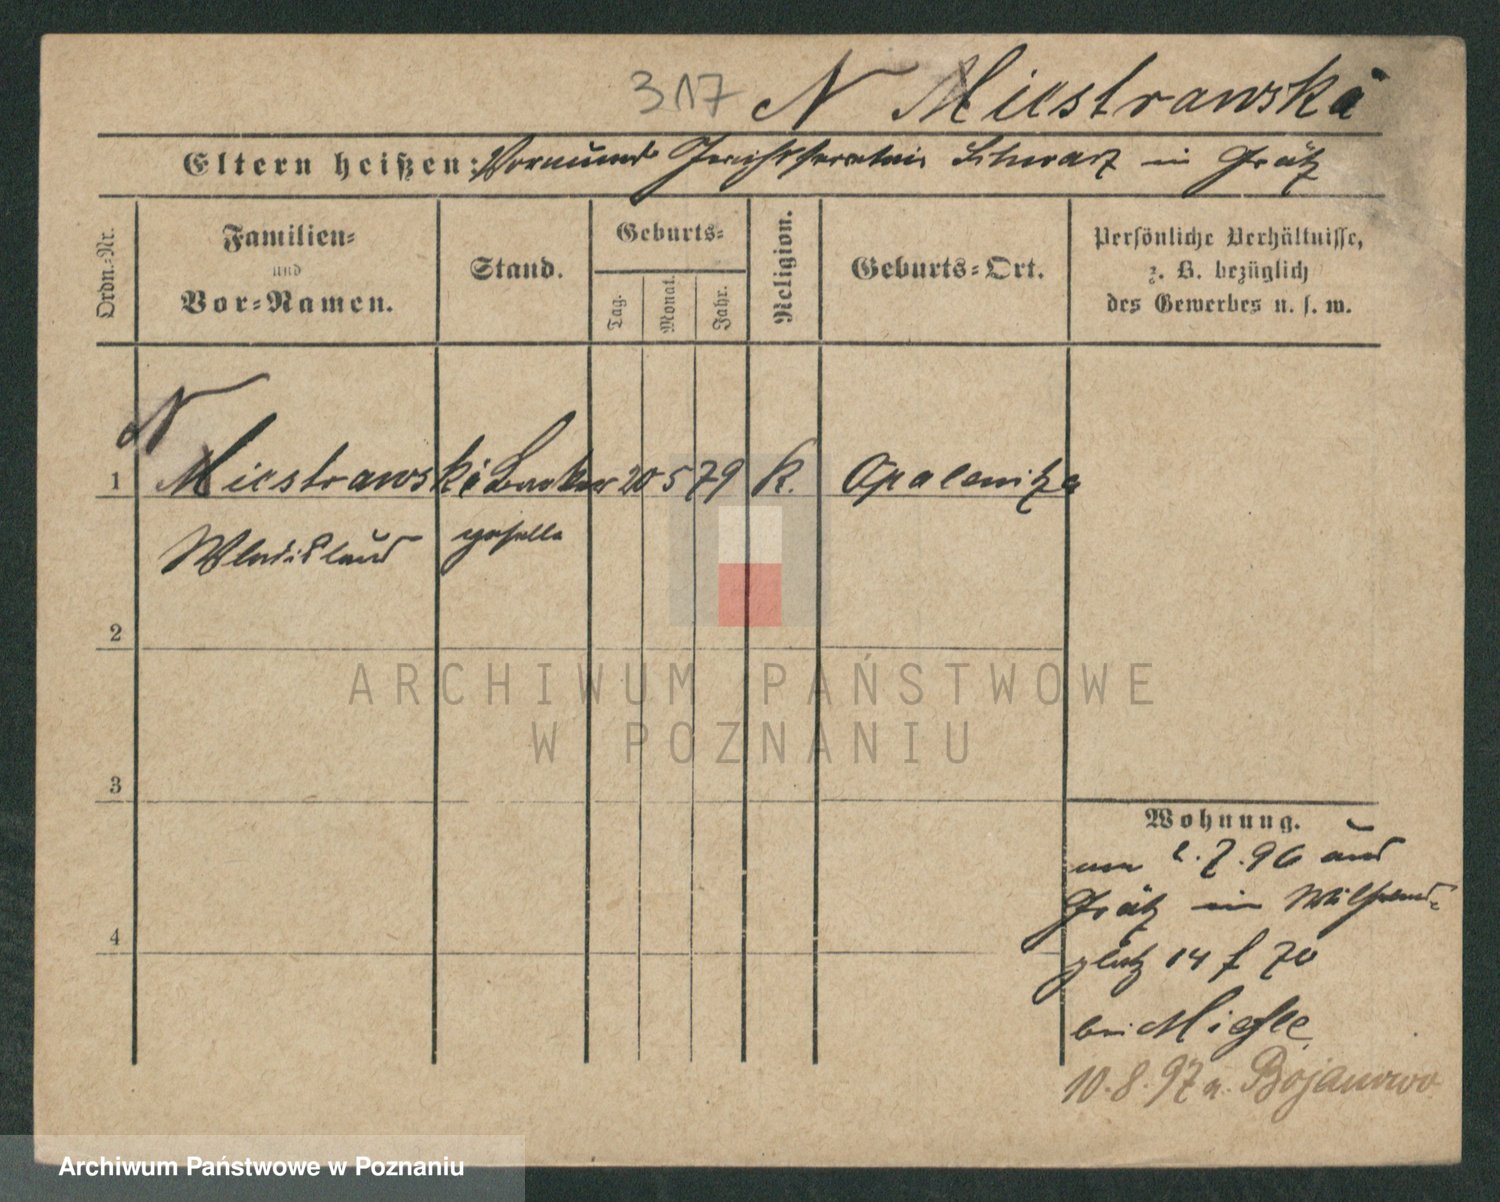 317 N Miestrawski
Eltern heißen: Vormund Gerichtssecretair Schwarz in Grätz
Ordn.-Nr.
Familien-
und
Vor-Namen.
Stand.
Geburts-
Tag.
Monat.
Jahr.
Religion.
Geburts-Ort.
Persönliche Verhältnisse,
z. B. bezüglich
des Gewerbes u. s. w.
N
1 Miestrawski Bäcker 20 5 79 K. Opalenitza
Wladislaus geselle
2
3
4
Wohnung.
am 2.7.96 aus
Grätz in Wilhelms-
platz 14 f 70
bei
10.8.97 n. Bojanowo
ARCHIWUM PAŃSTWOWE
W POZNANIU
Archiwum Państwowe w Poznaniu